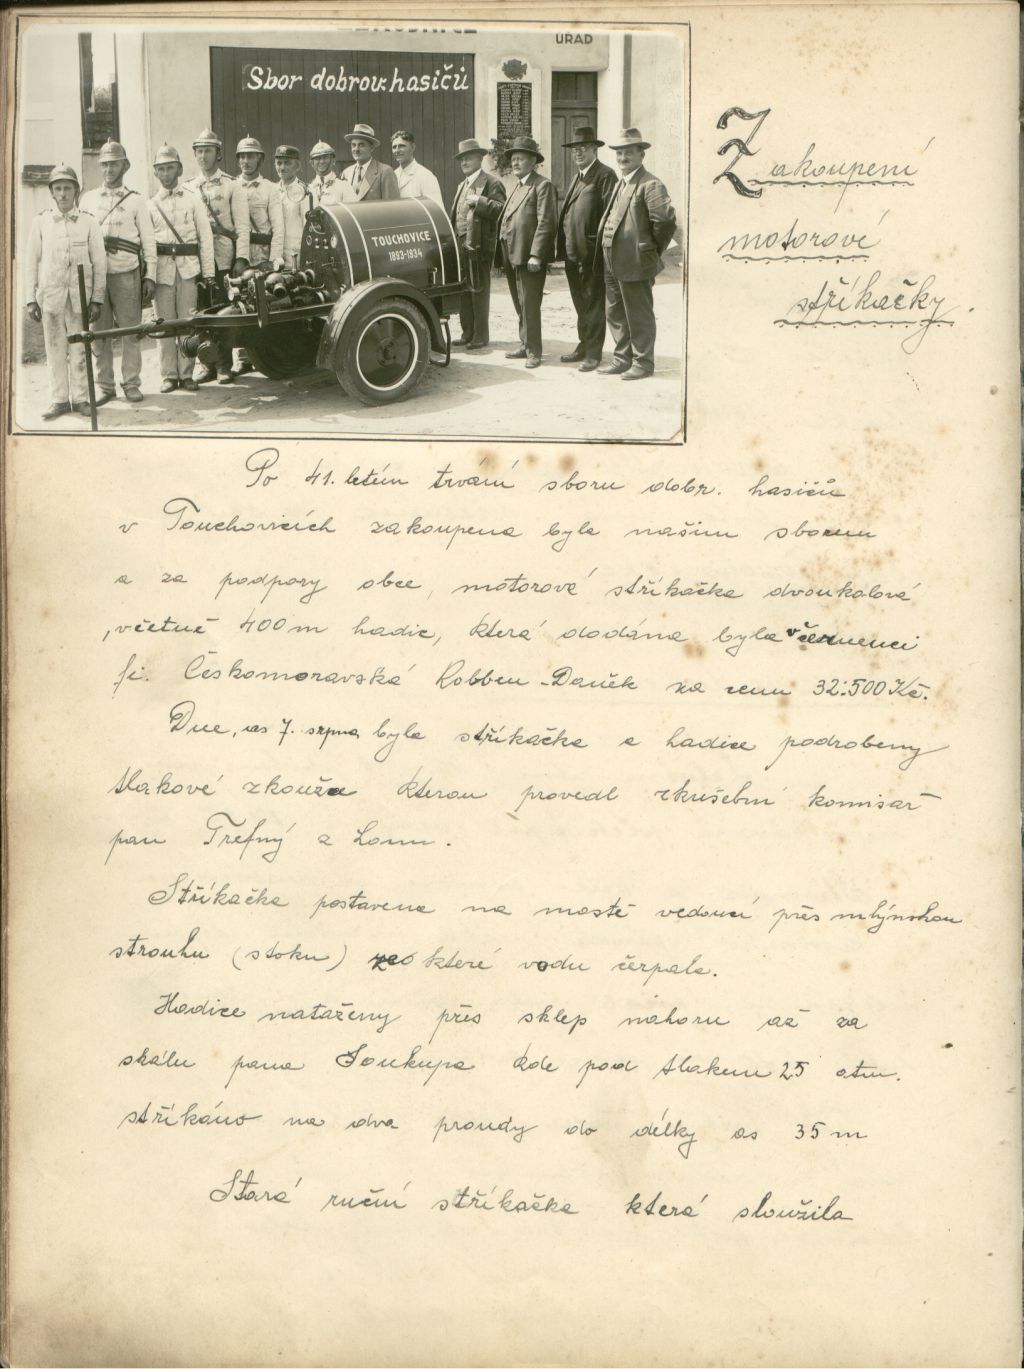 ÚŘAD
Sbor dobrov. hasičů
TOUCHOVICE
1893-1934
Zakoupení
motorové
stříkačky.
Po 41. letém trvání sboru dobr. hasičů
v Touchovicích zakoupena byla našim sborem
a za podpory obce, motorová stříkačka dvoukolová
, včetně 400 m hadic, která dodána byla v červenci
fi. Českomoravská Kolben-Daněk za cenu 32.500 Kč.
Dne, 7. srpna byla stříkačka a hadice podrobeny
tlakové zkoušce kterou provedl zkušební komisař
pan Trefný z Loun.
Stříkačka postavena na mostě vedoucí přes mlýnskou
strouhu (stoku) ze které vodu čerpala.
Hadice nataženy přes sklep nahoru až za
skálu pana Soukupa kde pod tlakem 25 atm.
stříkáno na dva proudy do délky as 35 m
Stará ruční stříkačka která sloužila